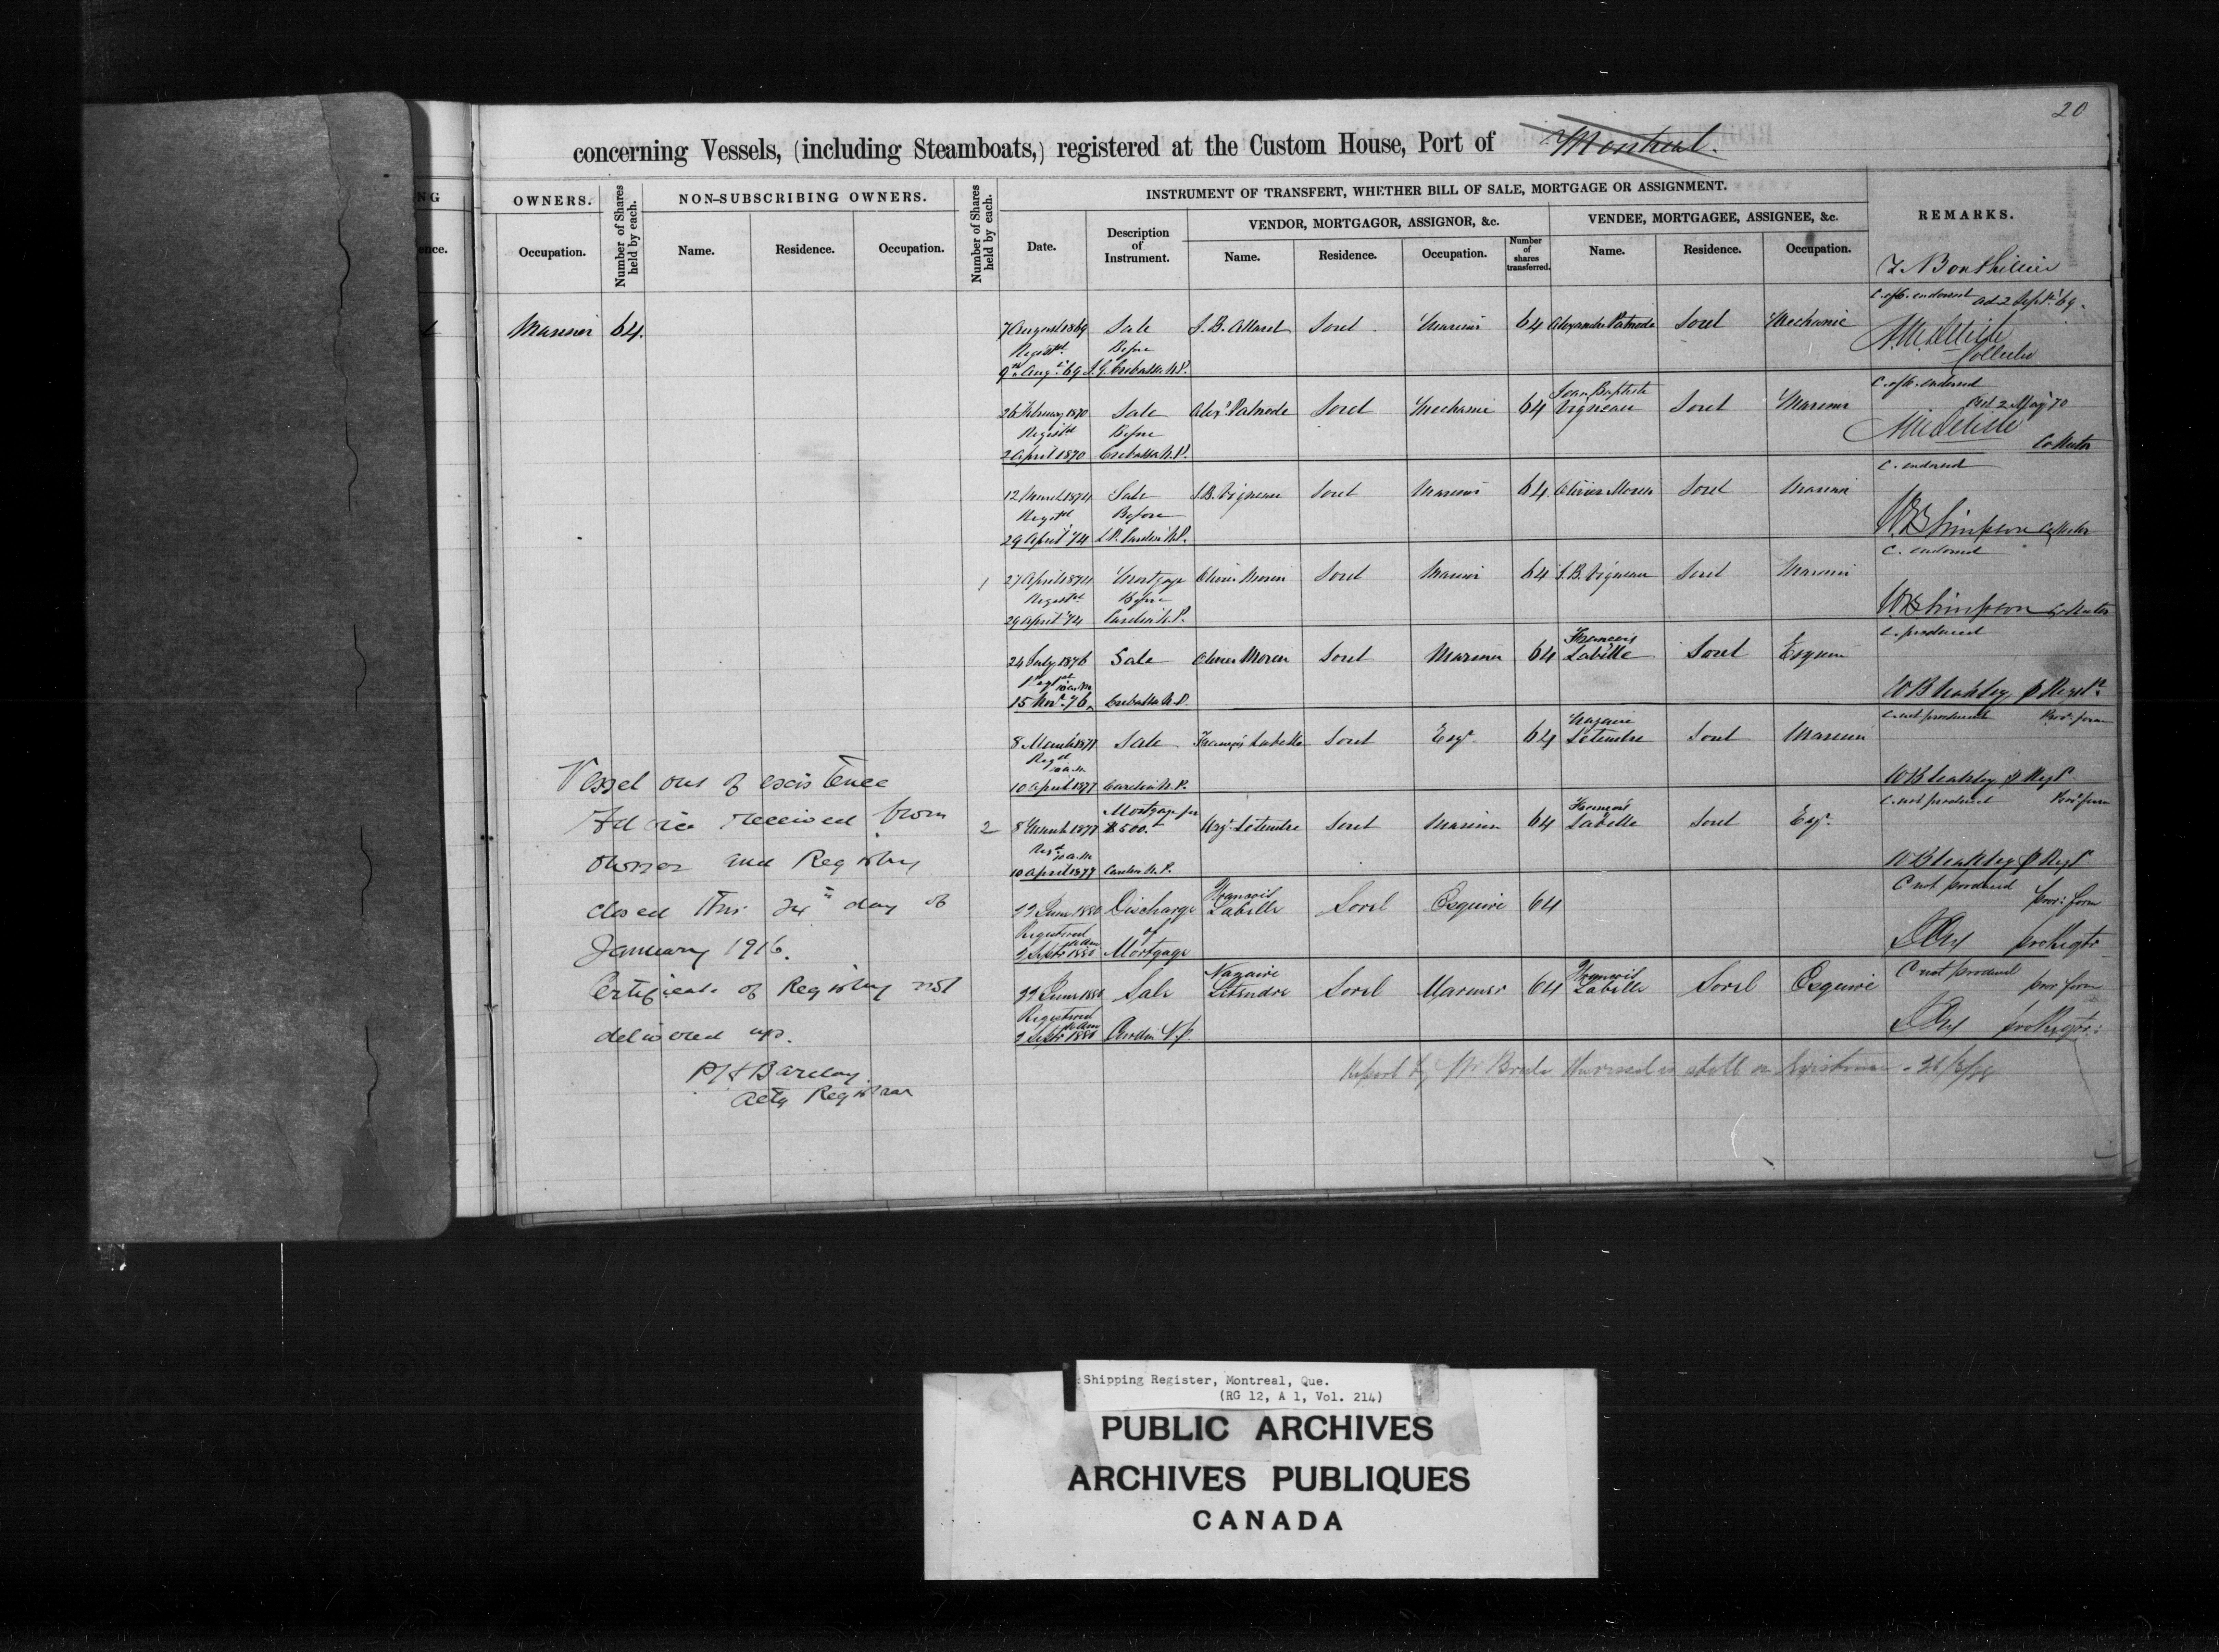 20
concerning Vessels, (including Steamboats,) registered at the Custom House, Port of Montreal.
NG
OWNERS.
Number of Shares held by each.
NON-SUBSCRIBING OWNERS.
Number of Shares held by each.
INSTRUMENT OF TRANSFERT, WHETHER BILL OF SALE, MORTGAGE OR ASSIGNMENT.
REMARKS.
VENDOR, MORTGAGOR, ASSIGNOR, &c.
VENDEE, MORTGAGEE, ASSIGNEE, &c.
ence.
Occupation.
Name.
Residence.
Occupation.
Date.
Description of Instrument.
Name.
Residence.
Occupation.
Number of shares transferred.
Name.
Residence.
Occupation.
C. of R. endorsed 2 Sept. '69.
Mariner 64. 7 August 1869 Sale J. B. Allard Sorel Mariner 64 Alexander Patnode Sorel Mechanic
Registd Before
9 Augt '69 N.P.
Collector
C. of R. endorsed
2 May 70
26 February 1870 Sale Alexr Patnode Sorel Mechanic 64 Jean Baptiste Vigneau Sorel Mariner
Registd Before
2 April 1870 N.P.
Collector
C. endorsed
12 March 1874 Sale J. B. Vigneau Sorel Mariner 64 Olivier Morin Sorel Mariner
Registd Before
29 April '74 N.P.
WB Simpson Collector
C. endorsed
1 27 April 1874 Mortgage Olivier Morin Sorel Mariner 64 J. B. Vigneau Sorel Mariner
Registd Before
29 April '74 N.P.
WB Simpson Collector
C. produced
24 July 1876 Sale Olivier Morin Sorel Mariner 64 François Labelle Sorel Esquire
Regd 10 a.m
15 Novr 76 N.P.
C not produced Prov: form
8 March 1877 Sale François Labelle Sorel Esqr 64 Nazaire Letendre Sorel Mariner
Regd 10 a.m.
10 April 1877 N.P.
C not produced Prov: form
2 8 March 1877 Mortgage for $500. Naz. Letendre Sorel Mariner 64 François Labelle Sorel Esqr.
Regd 10 a.m
10 April 1877 N.P.
C not produced prov: form
22 June 1880 Discharge of Mortgage François Labelle Sorel Esquire 64
Registered
2 Septr 1880
C not produced prov form
22 June 1880 Sale Nazaire Letendre Sorel Mariner 64 François Labelle Sorel Esquire
Registered
2 Septr 1880 N.P.
Report by Mr vessel is still in existence
Vessel out of existence
Advice received from
owner and Registry
closed this 24th day of
January 1916.
Certificate of Registry not
delivered up.
P H Barclay
Actg Registrar
Shipping Register, Montreal, Que.
(RG 12, A 1, Vol. 214)
PUBLIC ARCHIVES
ARCHIVES PUBLIQUES
CANADA